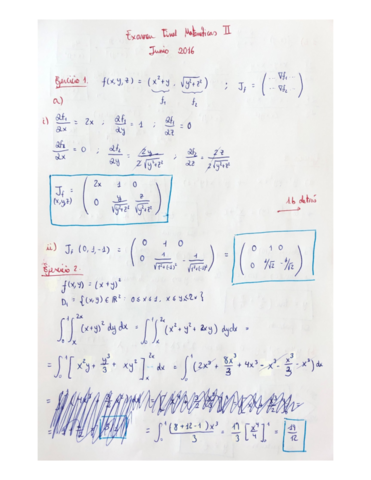 Examen Final Matemáticas II
Junio 2016
Ejercicio 1. f(x,y,z) = (x²+y , √(y²+z²)) ; J_f = (…∇f₁… …∇f₂…)
f₁ f₂
a)
i) ∂f₁/∂x = 2x ; ∂f₁/∂y = 1 ; ∂f₁/∂z = 0
∂f₂/∂x = 0 ; ∂f₂/∂y = 2y/2√(y²+z²) ; ∂f₂/∂z = 2z/2√(y²+z²)
J_f (x,y,z) = ( 2x 1 0 ; 0 y/√(y²+z²) z/√(y²+z²) )
1b detrás
ii) J_f (0,1,-1) = ( 0 1 0 ; 0 1/√(1²+(-1)²) -1/√(1²+(-1)²) ) = ( 0 1 0 ; 0 1/√2 -1/√2 )
Ejercicio 2
f(x,y) = (x+y)²
D₁ = {(x,y) ∈ ℝ² : 0≤x≤1, x≤y≤2x}
∫₀¹ ∫ₓ²ˣ (x+y)² dy dx = ∫₀¹ ∫ₓ²ˣ (x²+y²+2xy) dy dx =
= ∫₀¹ [ x²y + y³/3 + xy² ]ₓ²ˣ dx = ∫₀¹ (2x³ + 8x³/3 + 4x³ - x³ - x³/3 - x³) dx
= ∫₀¹ (8+12-1)x³/3 = 19/3 [x⁴/4]₀¹ = 19/12